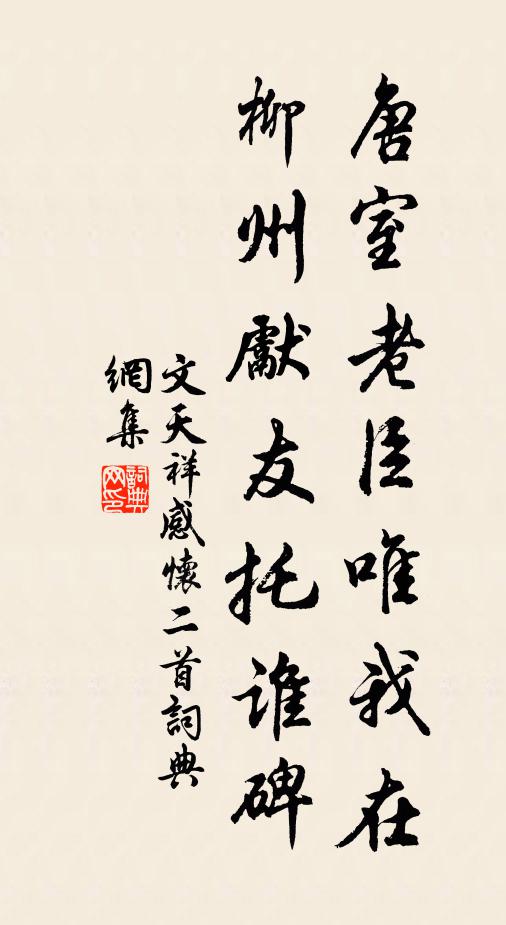 唐室老臣唯我在
柳州獻友托誰碑
文天祥感懷二首詞典
網集
詞典
网印